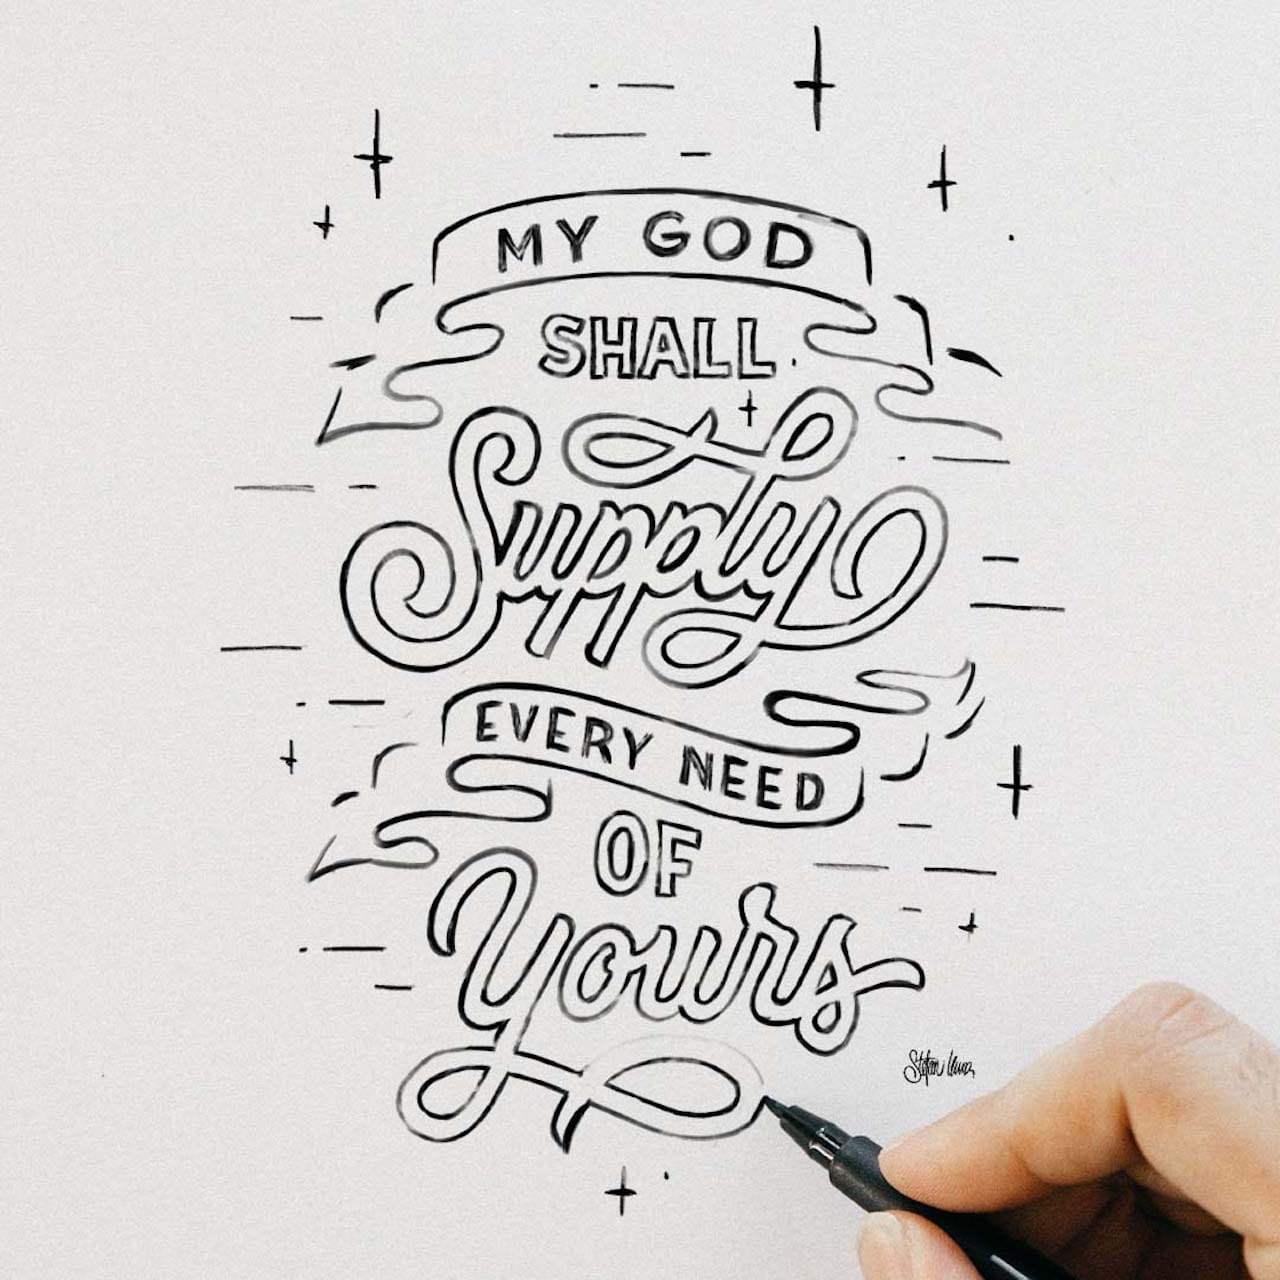 MY GOD
SHALL
Supply
EVERY NEED
OF
Yours
Stefan